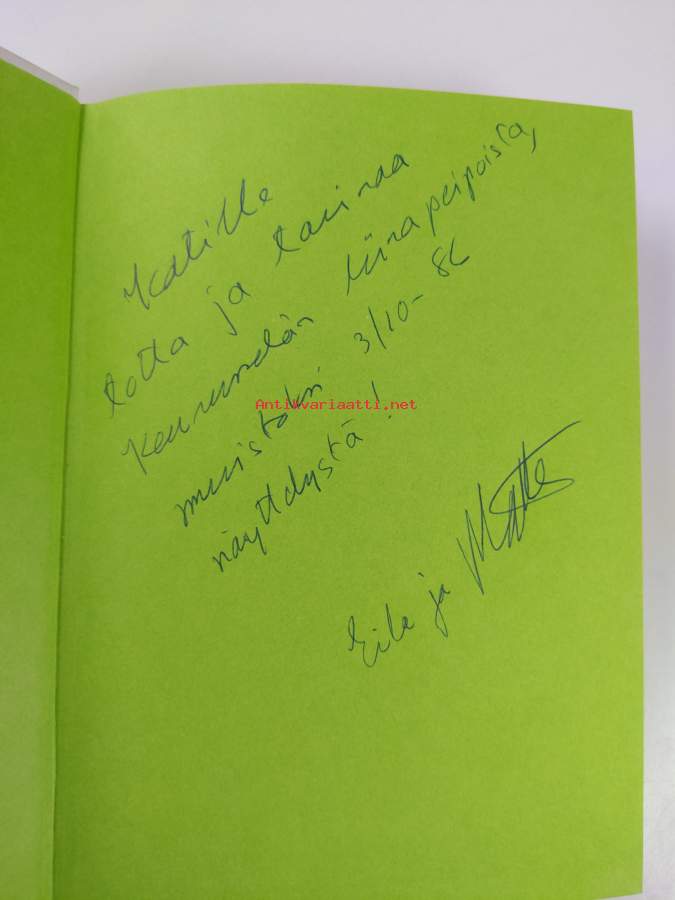 Katille
totta ja tarinaa
Keuruselän Liinapeipoista,
muistoksi 3/10-86
näyttelystä!
Eila ja Matti
Antikvariaatti.net